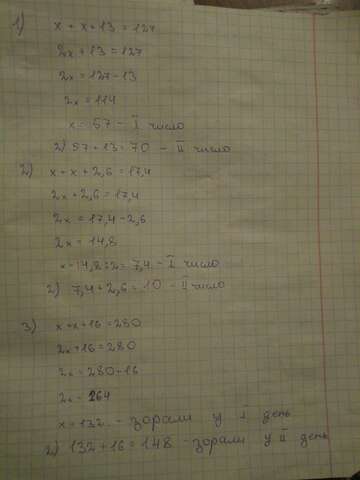 1) x + x + 13 = 127
2x + 13 = 127
2x = 127 - 13
2x = 114
x = 57 - I число
2) 57 + 13 = 70 - II число
2) x + x + 2,6 = 17,4
2x + 2,6 = 17,4
2x = 17,4 - 2,6
2x = 14,8
x = 14,8 : 2 = 7,4 - I число
2) 7,4 + 2,6 = 10 - II число
3) x + x + 16 = 280
2x + 16 = 280
2x = 280 - 16
2x = 264
x = 132 - зорали у I день
2) 132 + 16 = 148 - зорали у II день